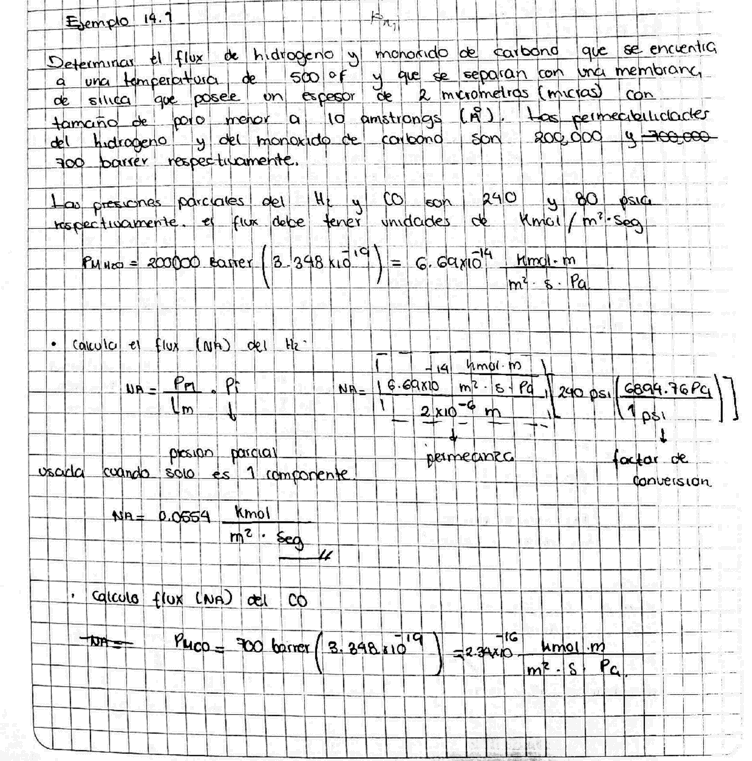 Ejemplo 14.1
Determinar el flux de hidrogeno y monoxido de carbono que se encuentra
a una temperatura de 500 °F y que se separan con una membrana
de silica que posee un espesor de 2 micrometros (micras) con
tamaño de poro menor a 10 amstrongs (Å). Las permeabilidades
del hidrogeno y del monoxido de carbono son 200,000 y 700,000
700 barrer respectivamente.
Las presiones parciales del H2 y CO son 240 y 80 psia
respectivamente. el flux debe tener unidades de Kmol/m²·seg
PM H2O = 200000 Barrer (3.348x10^-19) = 6.69x10^-14 Kmol·m / m²·s·Pa
• Calcula el flux (NA) del H2:
NA = PM / lm · Pi NA = [6.69x10^-14 Kmol·m / m²·s·Pa / 2x10^-6 m] [240 psi (6894.76 Pa / 1 psi)]
presion parcial permeanza factor de
usada cuando solo es 1 componente. conversion.
NA = 0.0554 Kmol / m²·seg
• Calculo flux (NA) del CO
NA = PM CO = 700 barrer (3.348x10^-19) = 2.34x10^-16 Kmol·m / m²·s·Pa.